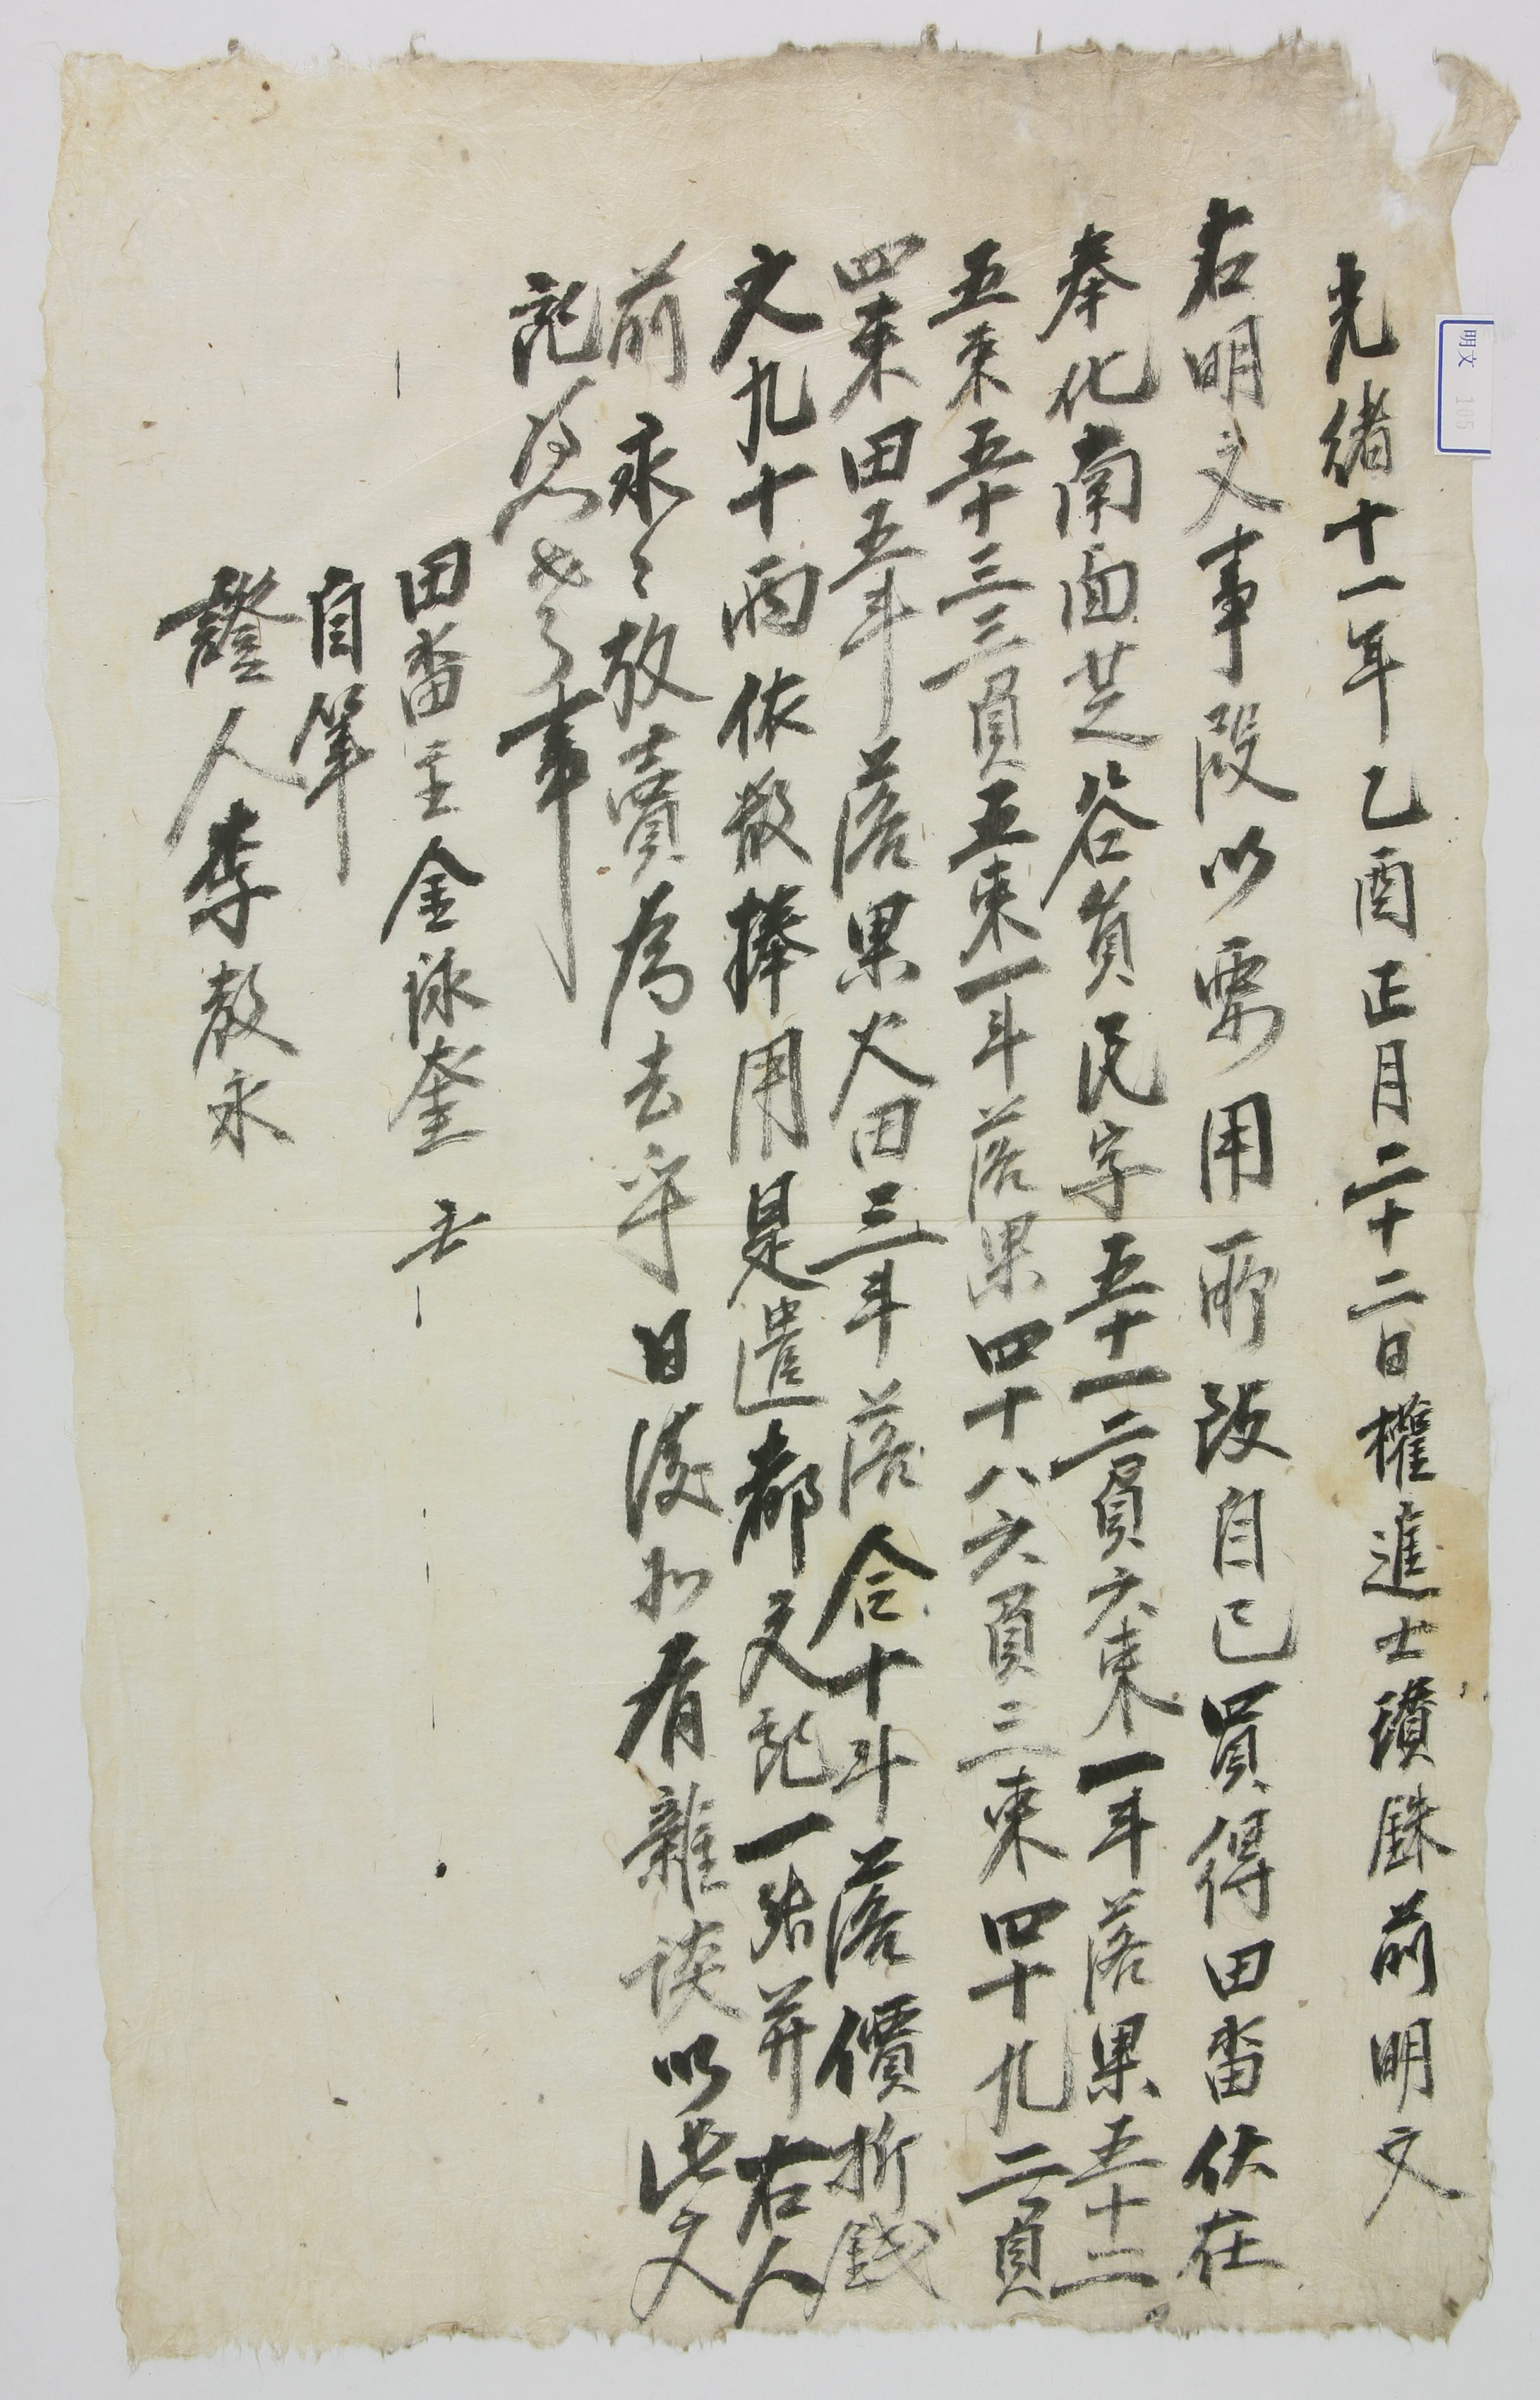 光緒十一年乙酉正月二十二日權進士瓚銖前明文
右明文事段以要用所致自己買得田畓伏在
奉化南面芝谷員民字五十一二員六束一斗落果五十二
五束五十三三員五束一斗落果四十八六員三束四十九二員
四束田五斗落果火田三斗落合十斗落價折錢
文九十兩依數捧用是遣都文記一張幷右人
前永々放賣爲去乎日後如有雜談以此文
記憑考事
田畓主金詠奎
自筆
證人李敎永
明文 105